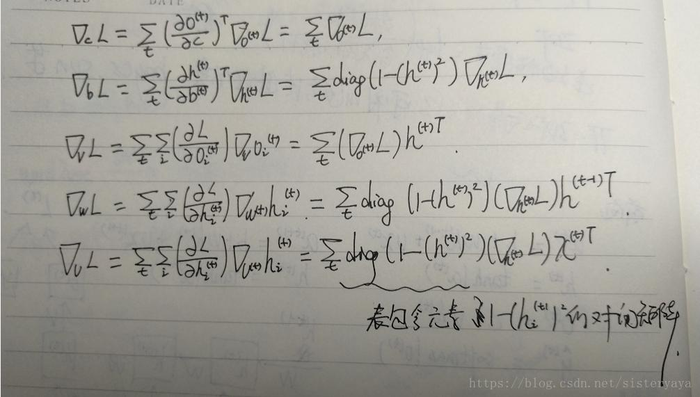 ∇_c L = Σ_t (∂O^(t)/∂c)^T ∇_{o^(t)} L = Σ_t ∇_{o^(t)} L,
∇_b L = Σ_t (∂h^(t)/∂b^(t))^T ∇_{h^(t)} L = Σ_t diag(1-(h^(t))^2) ∇_{h^(t)} L,
∇_v L = Σ_t Σ_i (∂L/∂O_i^(t)) ∇_v o_i^(t) = Σ_t (∇_{o^(t)} L) h^(t)T.
∇_w L = Σ_t Σ_i (∂L/∂h_i^(t)) ∇_{w^(t)} h_i^(t) = Σ_t diag (1-(h^(t))^2)(∇_{h^(t)} L) h^(t-1)T.
∇_U L = Σ_t Σ_i (∂L/∂h_i^(t)) ∇_{U^(t)} h_i^(t) = Σ_t diag (1-(h^(t))^2)(∇_{h^(t)} L) x^(t)T.
表包含元素 1-(h_i^(t))^2 的对角矩阵
https://blog.csdn.net/sisteryaya